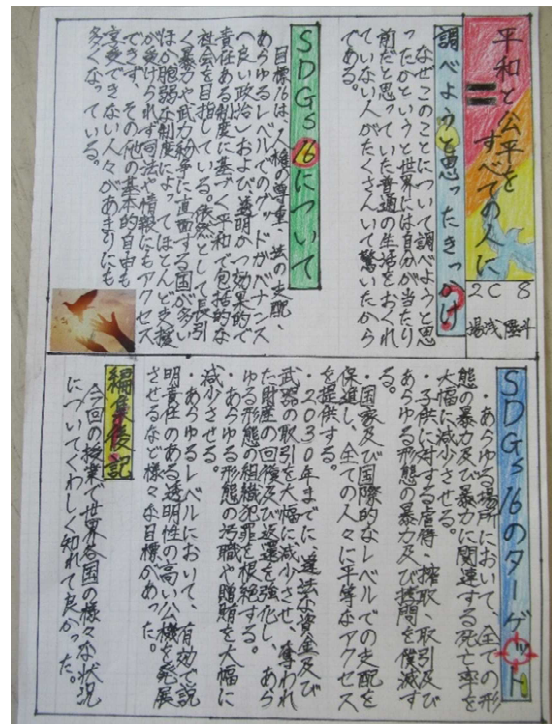 平和と公平を
すべての人に
2C 8
調べようと思ったきっかけ
なぜこのことについて調べようと思
ったかというと世界には自分が当たり
前だと思っていた普通の生活をおくれ
ていない人がたくさんいて驚いたから
である。
SDGs16について
目標16は、人権の尊重、法の支配、
あらゆるレベルでのグッドガバナンス
(良い政治)および透明かつ効果的で
責任ある制度に基づく平和で包括的な
社会を目指している。依然として長引
く暴力や武力紛争に直面する国が多い
ほか脆弱な制度によってほとんど支援
が受けられず司法や情報にもアクセス
できず、その他の基本的自由も
享受できない人々があまりにも
多くなっている。
SDGs16のターゲット
・あらゆる場所において、全ての形
態の暴力及び暴力に関連する死亡率を
大幅に減少させる。
・子供に対する虐待、搾取、取引及び
あらゆる形態の暴力及び拷問を撲滅す
る。
・国家及び国際的なレベルでの支配を
促進し、全ての人々に平等なアクセス
を提供する。
・2030年までに、違法な資金及び
武器の取引を大幅に減少させ、奪われ
た財産の回復及び返還を強化し、あら
ゆる形態の組織犯罪を根絶する。
・あらゆる形態の汚職や贈賄を大幅に
減少させる。
・あらゆるレベルにおいて、有効で説
明責任のある透明性の高い公機を発展
させるなど様々な目標があった。
編集後記
今回の授業で世界各国の様々な状況
についてくわしく知れて良かった。